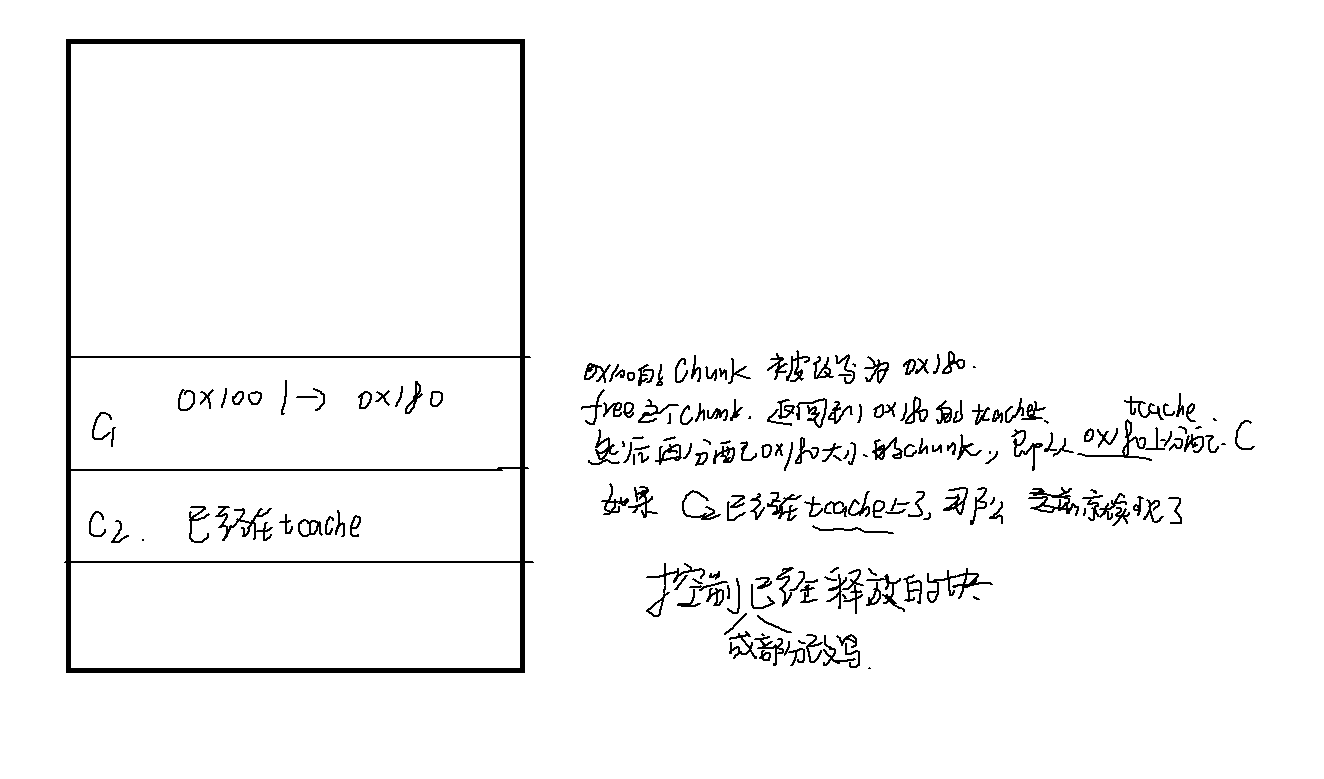 0x100 |→ 0x180
C1
C2. 已经在tcache
0x100的Chunk 被改写为 0x180.
free这个Chunk. 返回到 0x180的tcache.
tcache.
然后再分配0x180大小的chunk, 即从0x180上分配. C
如果 C2已经在tcache上了, 那么 就实现了
控制已经释放的块
或部分改写.